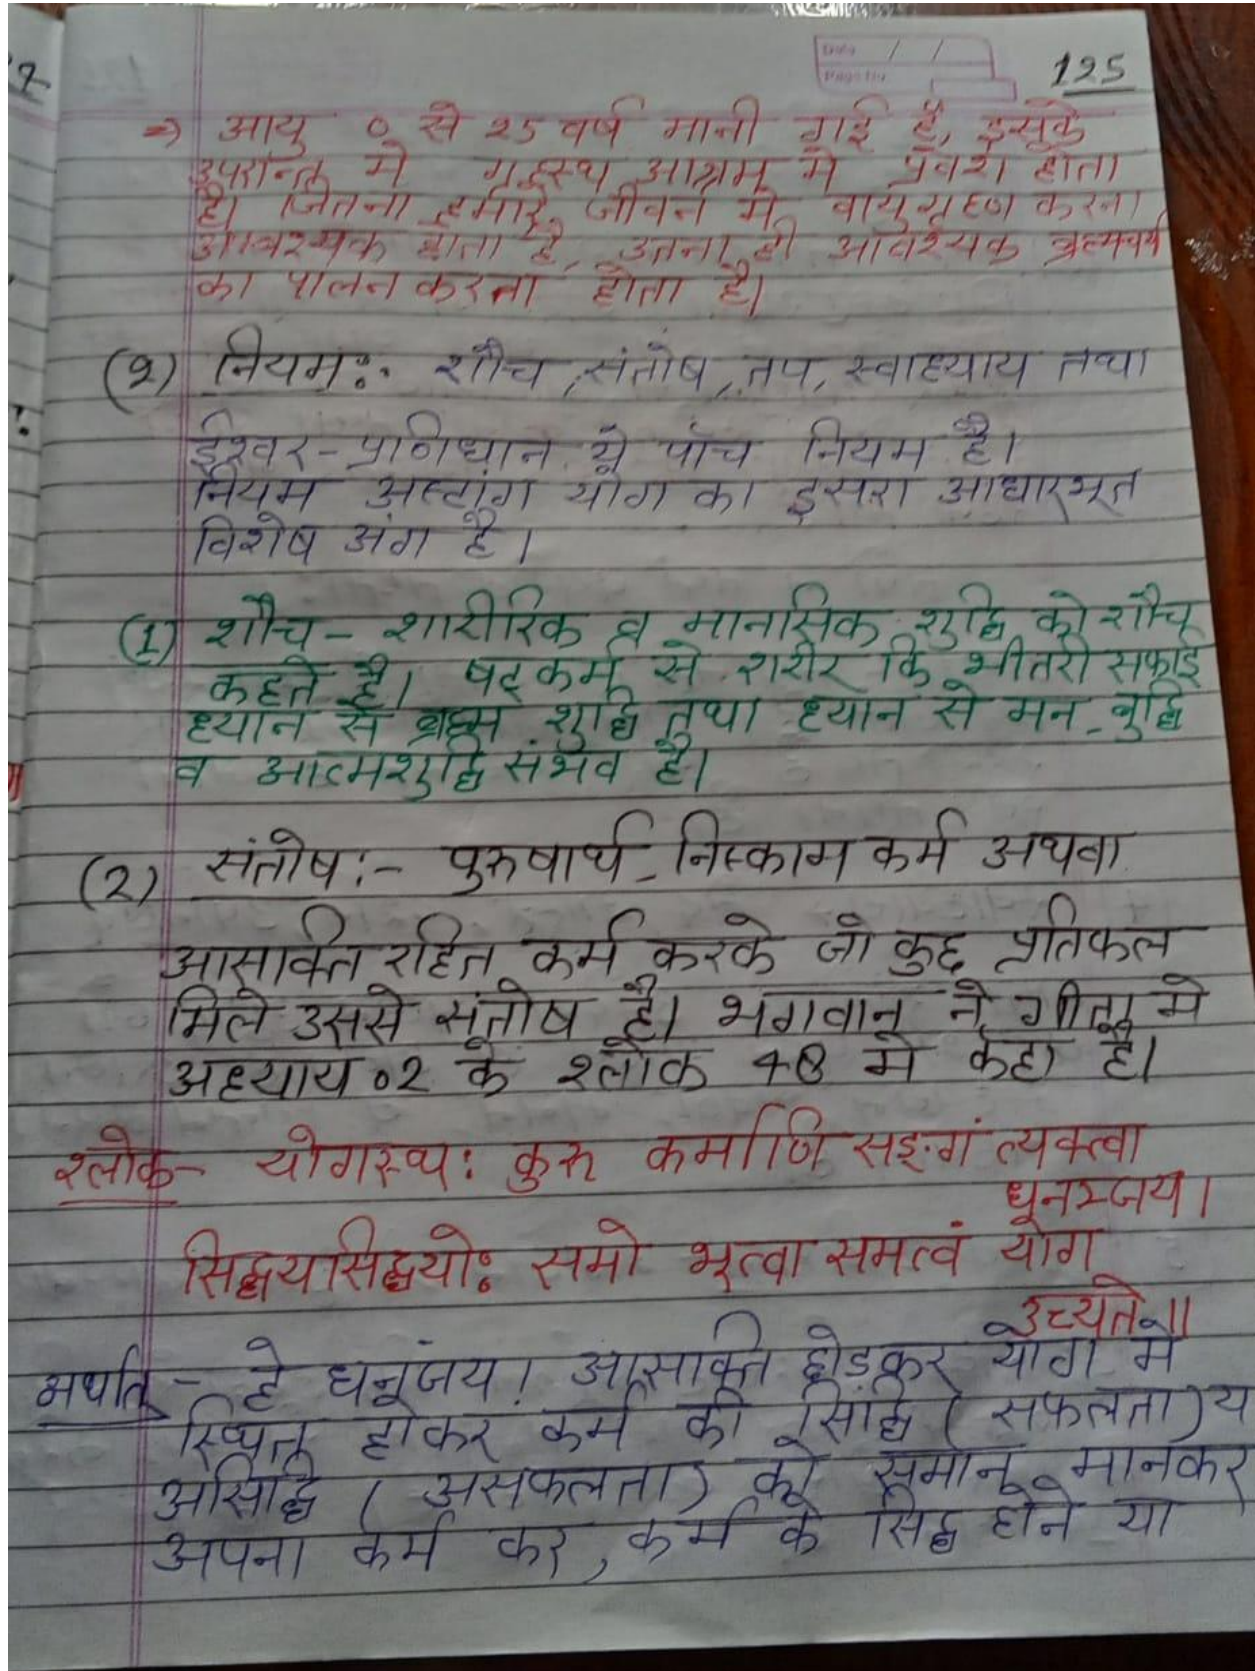 125
⇒ आयु 0 से 25 वर्ष मानी गई है, इसके
उपरान्त मे गृहस्थ आश्रम मे प्रवेश होता
है। जितना हमारे जीवन मे वायु ग्रहण करना
आवश्यक होता है, उतना ही आवश्यक ब्रह्मचर्य
का पालन करना होता है।
(2) नियम:- शौच, संतोष, तप, स्वाध्याय तथा
ईश्वर-प्रणिधान ये पाँच नियम है।
नियम अष्टांग योग का दुसरा आधारभूत
विशेष अंग है।
(1) शौच - शारीरिक व मानसिक शुद्धि को शौच
कहते है। षट्कर्म से शरीर कि भीतरी सफाई
ध्यान से ब्रह्म शुद्धि तथा ध्यान से मन, बुद्धि
व आत्मशुद्धि संभव है।
(2) संतोष:- पुरुषार्थ, निष्काम कर्म अथवा
आसक्ति रहित कर्म करके जो कुछ प्रतिफल
मिले उससे संतोष है। भगवान् ने गीता मे
अध्याय 02 के श्लोक 48 मे कहा है।
श्लोक - योगस्थ: कुरु कर्माणि सङ्गं त्यक्त्वा
धनञ्जय।
सिद्धयसिद्धयो: समो भूत्वा समत्वं योग
उच्यते॥
अर्थात् - हे धनंजय! आसक्ति छोडकर योग मे
स्थित होकर कर्म की सिद्धि (सफलता) य
असिद्धि (असफलता) को समान मानकर
अपना कर्म कर, कर्म के सिद्ध होने या